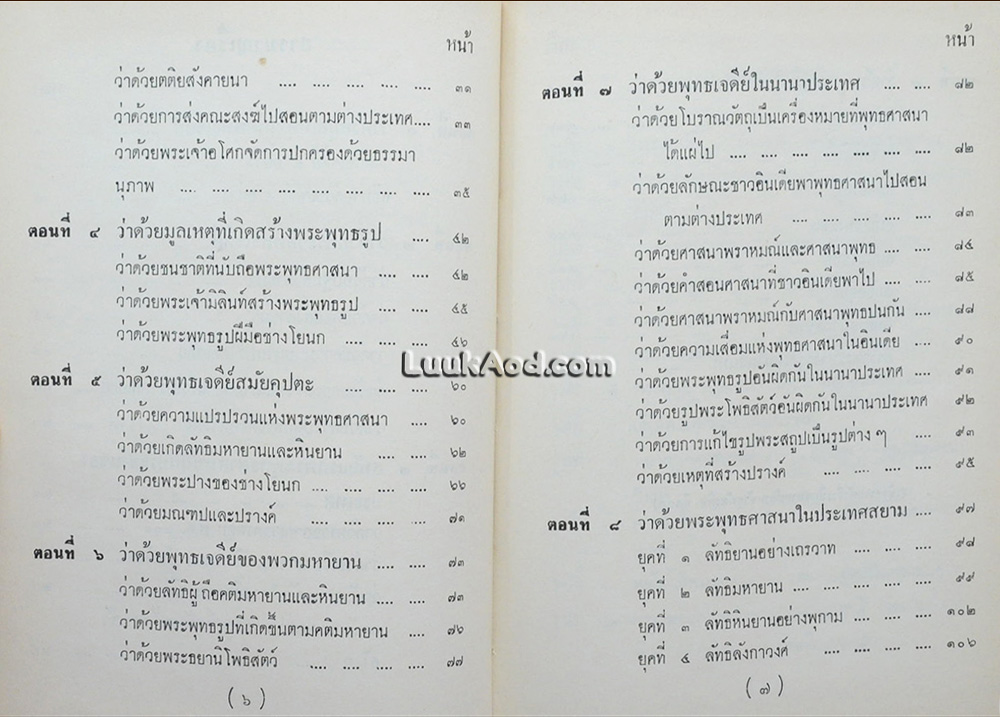 หน้า
ว่าด้วยตติยสังคายนา .... .... .... .... .... ๓๑
ว่าด้วยการส่งคณะสงฆ์ไปสอนตามต่างประเทศ.... ๓๓
ว่าด้วยพระเจ้าอโศกจัดการปกครองด้วยธรรมา
นุภาพ .... .... .... .... .... .... .... .... ๓๕
ตอนที่ ๔ ว่าด้วยมูลเหตุที่เกิดสร้างพระพุทธรูป .... ๔๒
ว่าด้วยชนชาติที่นับถือพระพุทธศาสนา .... .... ๔๒
ว่าด้วยพระเจ้ามิลินท์สร้างพระพุทธรูป .... .... ๔๕
ว่าด้วยพระพุทธรูปฝีมือช่างโยนก .... .... .... ๔๖
ตอนที่ ๕ ว่าด้วยพุทธเจดีย์สมัยคุปตะ .... .... .... ๖๐
ว่าด้วยความแปรปรวนแห่งพระพุทธศาสนา .... ๖๐
ว่าด้วยเกิดลัทธิมหายานและหินยาน .... .... ๖๒
ว่าด้วยพระปางของช่างโยนก .... .... .... .... ๖๖
ว่าด้วยมณฑปและปรางค์ .... .... .... .... ๗๑
ตอนที่ ๖ ว่าด้วยพุทธเจดีย์ของพวกมหายาน .... .... ๗๓
ว่าด้วยลัทธิผู้ถือคติมหายานและหินยาน .... .... ๗๓
ว่าด้วยพระพุทธรูปที่เกิดขึ้นตามคติมหายาน .... ๗๖
ว่าด้วยพระธยานิโพธิสัตว์ .... .... .... .... ๗๗
( ๖ )
หน้า
ตอนที่ ๗ ว่าด้วยพุทธเจดีย์ในนานาประเทศ .... .... ๘๒
ว่าด้วยโบราณวัตถุเป็นเครื่องหมายที่พุทธศาสนา
ได้แผ่ไป .... .... .... .... .... .... .... .... ๘๒
ว่าด้วยลักษณะชาวอินเดียพาพุทธศาสนาไปสอน
ตามต่างประเทศ .... .... .... .... .... ๘๓
ว่าด้วยศาสนาพราหมณ์และศาสนาพุทธ .... .... ๘๔
ว่าด้วยคำสอนศาสนาที่ชาวอินเดียพาไป .... .... ๘๕
ว่าด้วยศาสนาพราหมณ์กับศาสนาพุทธปนกัน .... ๘๘
ว่าด้วยความเสื่อมแห่งพุทธศาสนาในอินเดีย .... ๙๐
ว่าด้วยพระพุทธรูปอันผิดกันในนานาประเทศ .... ๙๑
ว่าด้วยรูปพระโพธิสัตว์อันผิดกันในนานาประเทศ ๙๒
ว่าด้วยการแก้ไขรูปพระสถูปเป็นรูปต่าง ๆ .... ๙๓
ว่าด้วยเหตุที่สร้างปรางค์ .... .... .... .... ๙๕
ตอนที่ ๘ ว่าด้วยพระพุทธศาสนาในประเทศสยาม .... ๙๗
ยุคที่ ๑ ลัทธิยานอย่างเถรวาท .... .... .... ๙๘
ยุคที่ ๒ ลัทธิมหายาน .... .... .... .... .... ๙๙
ยุคที่ ๓ ลัทธิหินยานอย่างพุกาม .... .... .... ๑๐๒
ยุคที่ ๔ ลัทธิลังกาวงศ์ .... .... .... .... ๑๐๖
( ๗ )
LuukAod.com